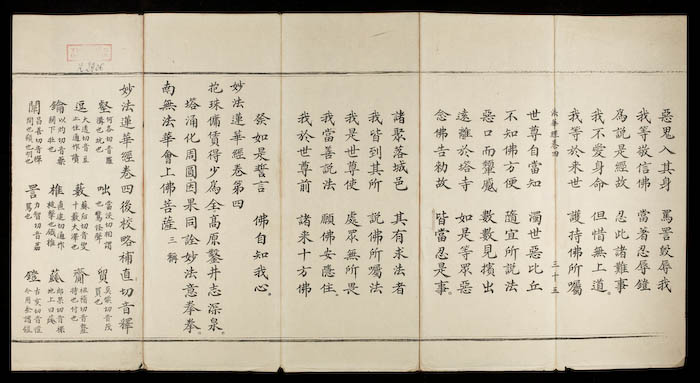 惡鬼入其身　罵詈毀辱我
我等敬信佛　當著忍辱鎧
為說是經故　忍此諸難事
我不愛身命　但惜無上道。
我等於來世　護持佛所囑
法華經卷四　三十五
世尊自當知　濁世惡比丘
不知佛方便　隨宜所說法
惡口而顰蹙　數數見擯出
遠離於塔寺　如是等眾惡
念佛告勅故　皆當忍是事。
諸聚落城邑　其有求法者
我皆到其所　說佛所囑法
我是世尊使　處眾無所畏
我當善說法　願佛安隱住。
我於世尊前　諸來十方佛
發如是誓言　佛自知我心。
妙法蓮華經卷第四
抱珠傭賃得少為全高原鑿井志深泉。
塔涌化周圓因果同詮妙法意拳拳。
南無法華會上佛菩薩 三稱
妙法蓮華經卷四後校略補直切音釋
壑　咄
逗　藪　齎
鑰　椎
開　詈　鎧